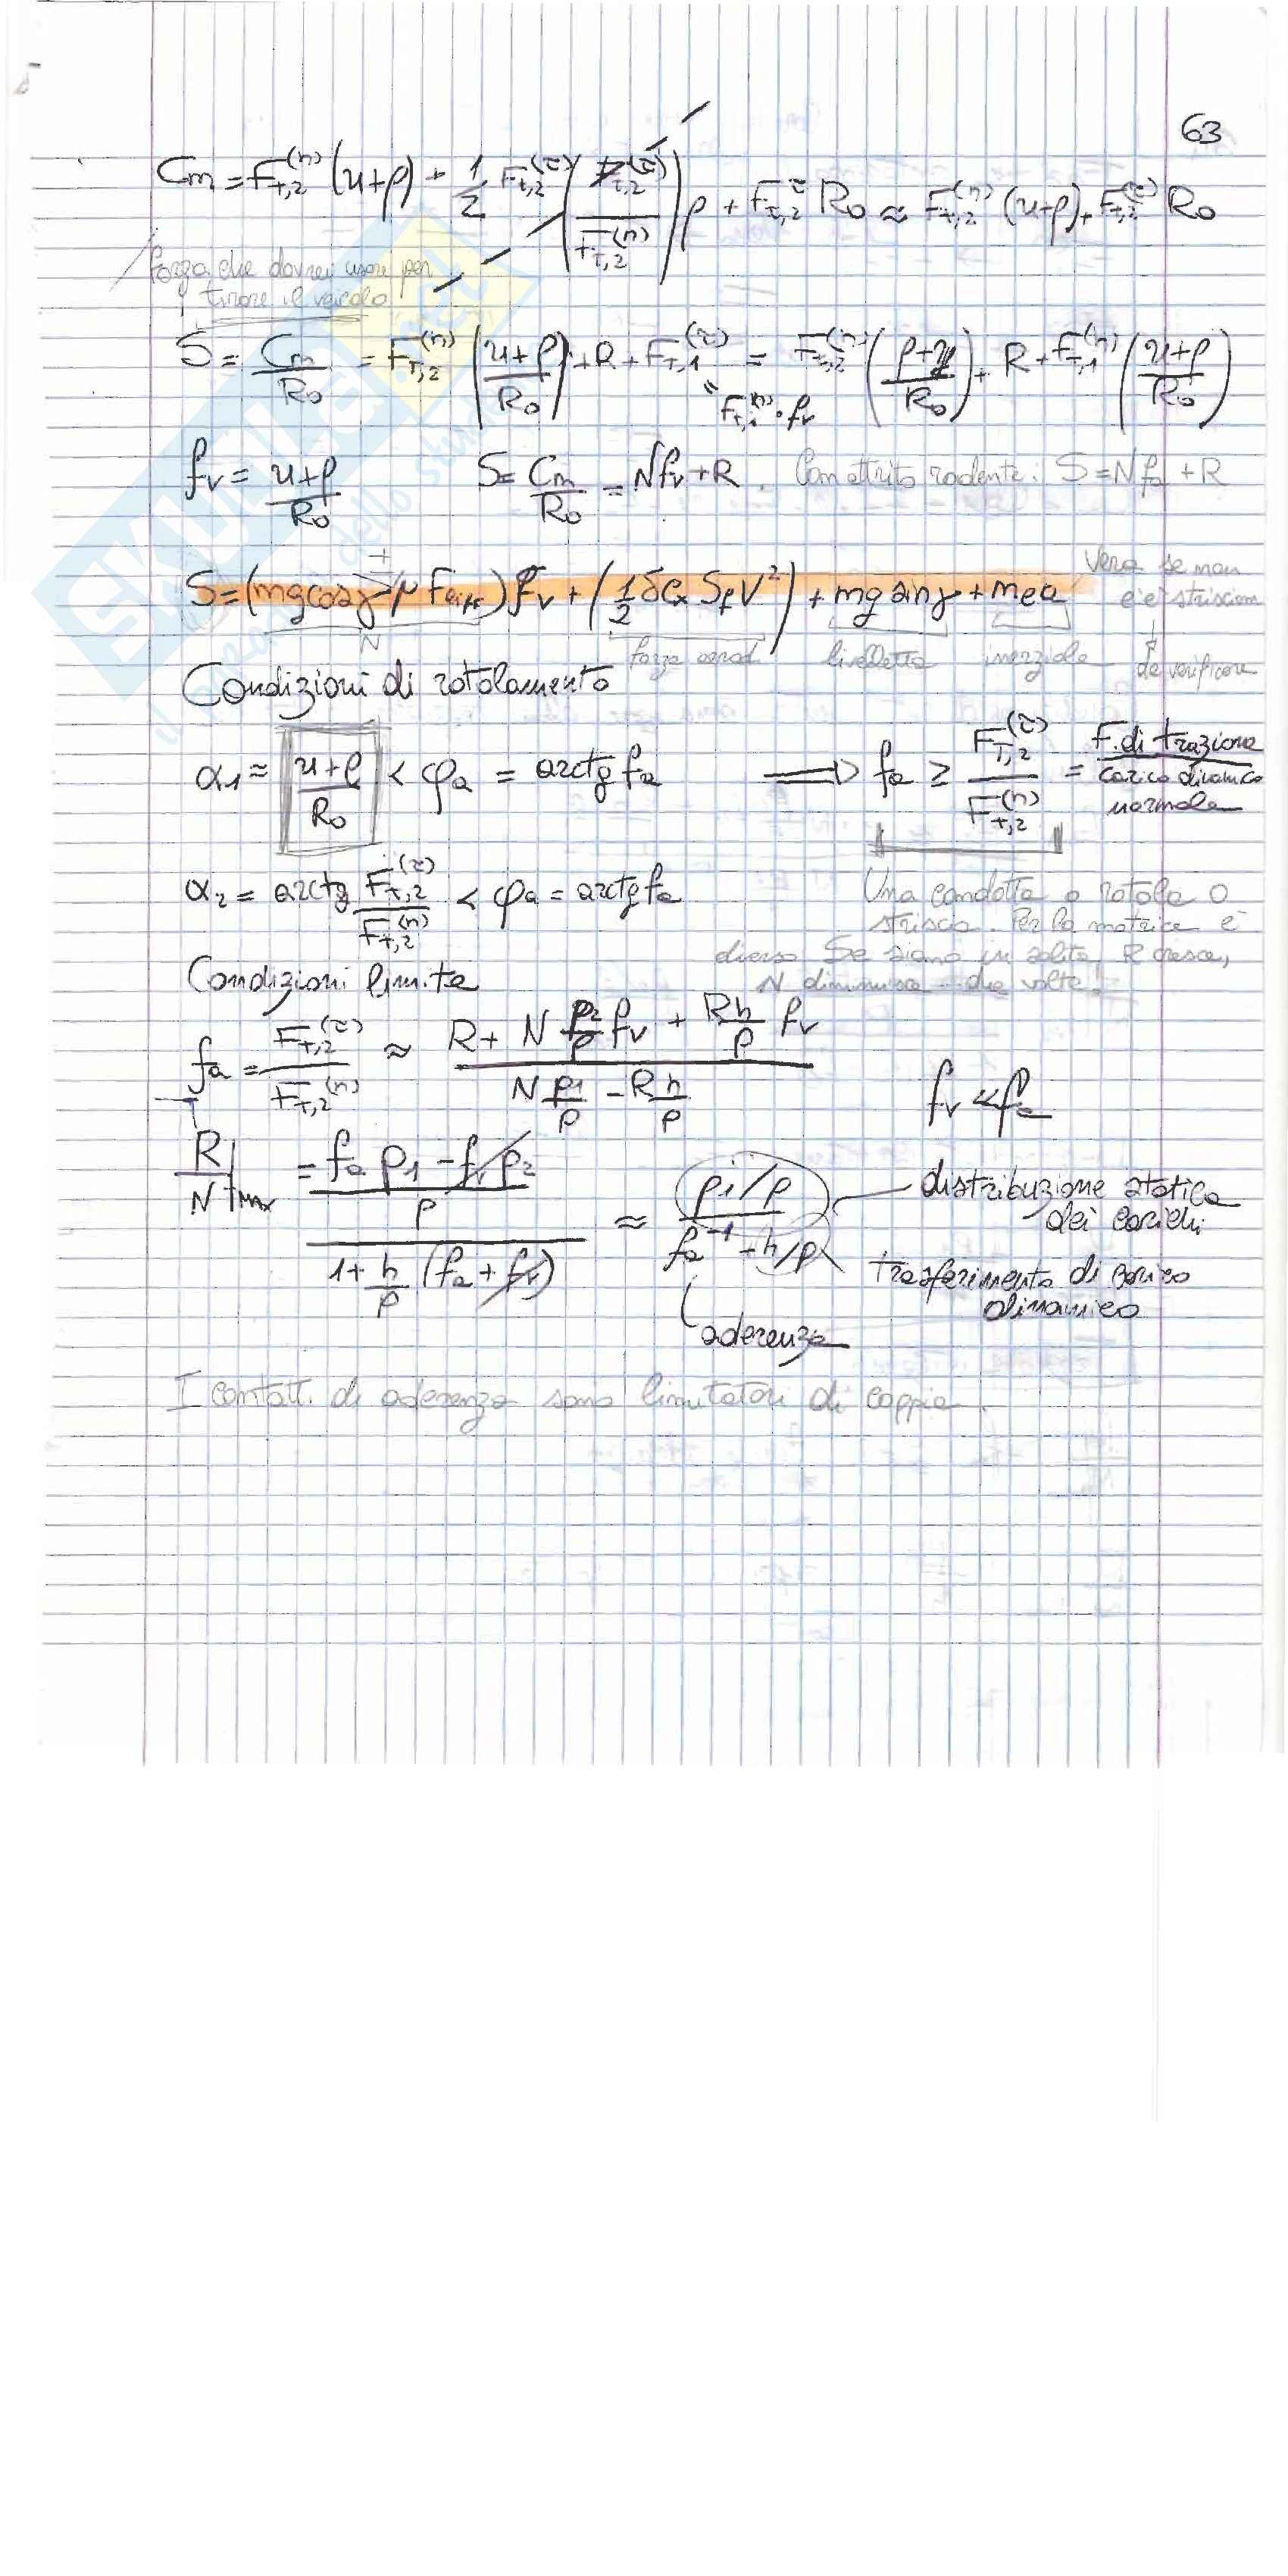 63
Cm = F_{T,2}^{(n)} (u+ρ) + 1/2 F_{T,2}^{(τ)} (F_{T,2}^{(τ)} / F_{T,2}^{(n)}) ρ + F_{T,2}^{τ} R₀ ≈ F_{T,2}^{(n)} (u+ρ) + F_{T,2}^{(τ)} R₀
Forza che dovrei usare per
tirare il veicolo
S = Cm/R₀ = F_{T,2}^{(n)} ((u+ρ)/R₀) + R + F_{T,1}^{(τ)} = F_{T,2}^{(n)} ((ρ+u)/R₀) + R + F_{T,1}^{(n)} ((u+ρ)/R₀)
" F_{T,1}^{(n)} · fv
fv = (u+ρ)/R₀ S = Cm/R₀ = Nfv + R. Con attrito radente: S = Nfa + R
S = (mg cosγ ± μ Faer) fv + (1/2 δ Cx Sf V²) + mg sinγ + me a
N forza aerod. livelletta inerziale
Vera se non
c'è strisciam
↓
da verificare
Condizioni di rotolamento
α₁ ≈ (u+ρ)/R₀ < φa = arctg fa ⟹ fa ≥ F_{T,2}^{(τ)} / F_{T,2}^{(n)} = F. di trazione / carico dinamico normale
α₂ = arctg F_{T,2}^{(τ)} / F_{T,2}^{(n)} < φa = arctg fa
Una condotta o rotola o
striscia. Per la motrice è
diverso. Se siamo in salita, R cresce,
N diminuisce due volte!
Condizioni limite
fa = F_{T,2}^{(τ)} / F_{T,2}^{(n)} ≈ (R + N p₂/p fv + Rh/p fv) / (N p₁/p - R h/p)
fv << fa
R/N|max = ((fa p₁ - fv p₂)/p) / (1 + h/p (fa + fv)) ≈ (p₁/p) / (fa⁻¹ + h/p)
distribuzione statica
dei carichi
trasferimento di carico
dinamico
aderenza
I contatti di aderenza sono limitatori di coppia.